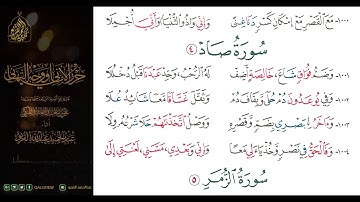 ١٠٠٠- مَعَ الْقَصْرِ مَعَ إِسْكَانِ كَسْرٍ دَنَا غِنًى وَإِنِّي وَذُو الثُّنْيَا وَأَنِّيَ أُجْمِلَا
سُورَةُ صَادَ ٤
١٠٠١- وَضَمُّ فُوَاقٍ شَاعَ، خَالِصَةِ أَضِفْ لَهُ الرُّحْبُ، وَحِّدْ عَبْدَنَا قَبْلُ دُخْلُلَا
١٠٠٢- وَفِي يُوعَدُونَ دُمْ حُلًى وَبِقَافَ دُمْ وَثَقَّلَ غَسَّاقًا مَعًا شَائِدٌ عُلَا
١٠٠٣- وَءَاخَرُ لِلْبَصْرِي بِضَمٍّ وَقَصْرِهِ وَوَصْلُ اتَّخَذْنَاهُمْ حَلَا شَرْعُهُ وِلَا
١٠٠٤- وَفَالْحَقُّ فِي نَصْرٍ وَخُذْ يَاءَ لِي مَعًا وَإِنِّي وَبَعْدِي، مَسَّنِي، لَعْنَتِي إِلَى
سُورَةُ الزُّمَرِ ٥
حرز الأماني ووجه التهاني
QALGREW